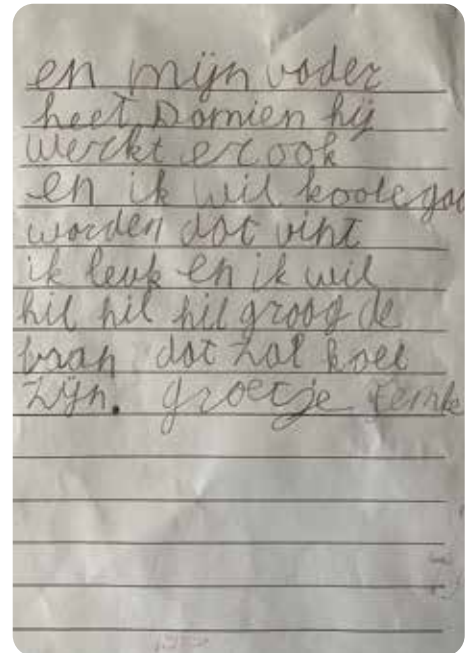 en mijn vader
heet Damien hij
werkt er ook
en ik wil
worden dat vint
ik leuk en ik wil
hil hil hil graag de
baan dat zal koel
zijn. groetje Femke